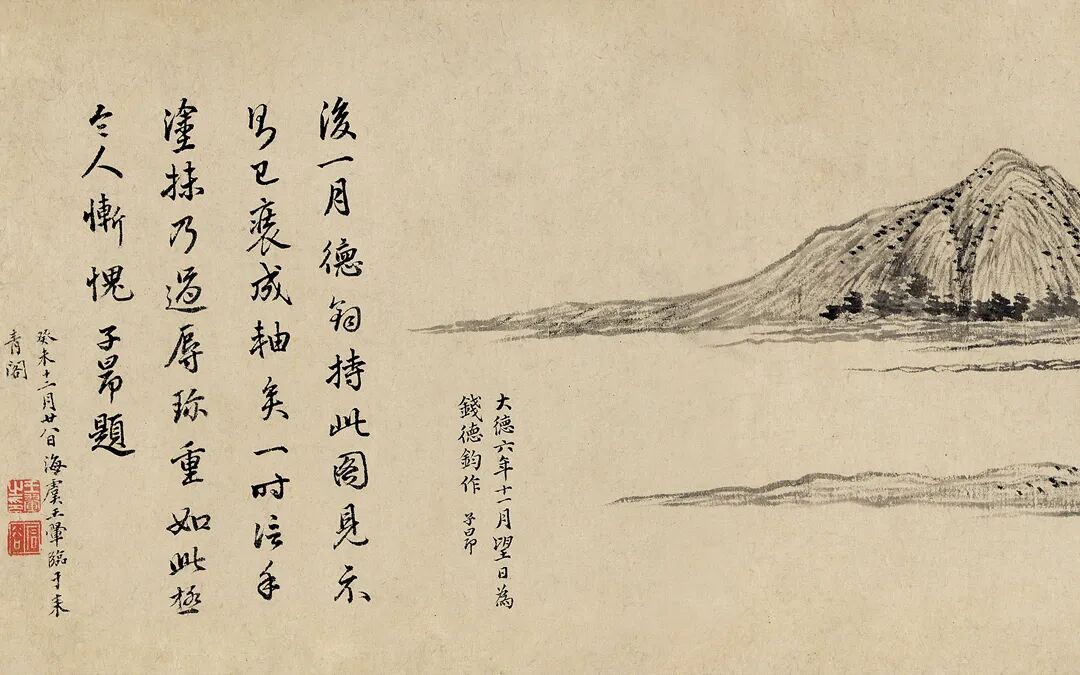 大德六年十一月望日為
錢德鈞作 子昂
後一月德鈞持此圖見示
則已裝成軸矣一時信手
塗抹乃過辱珍重如此極
令人慚愧子昂題
癸未十二月廿八日海虞王翬臨于來
青閣
王翬之印